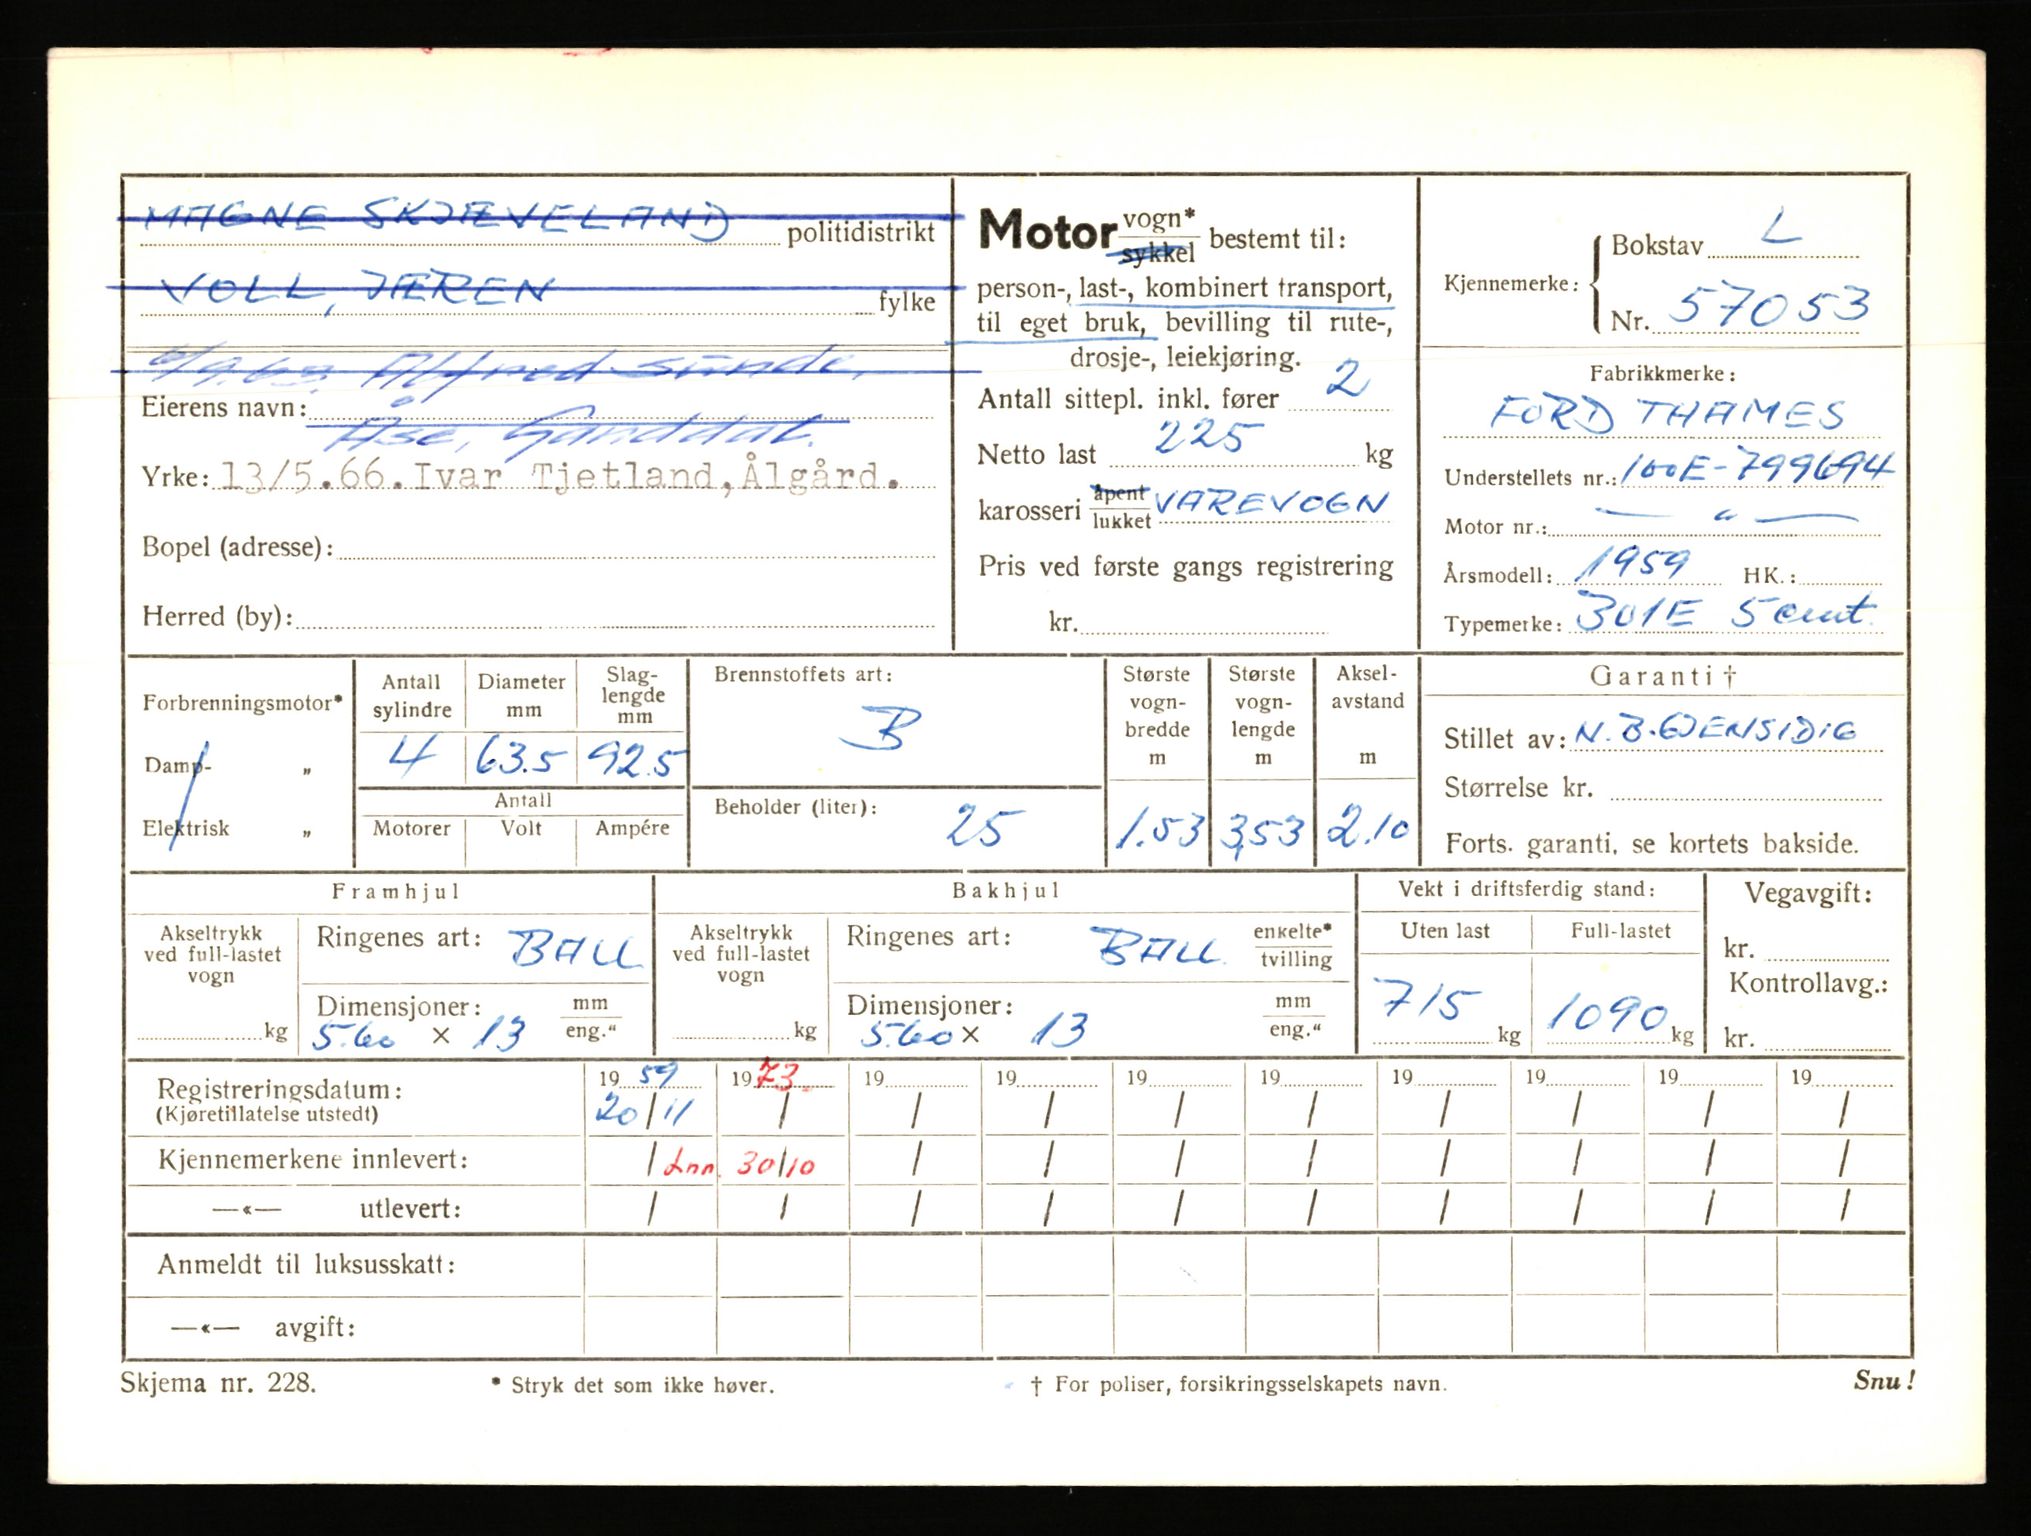 MAGNE SKJÆVELAND politidistrikt
VOLL, JÆREN fylke
Alfred Sunde,
Eierens navn:
Åse, Ganddal.
Yrke: 13/5.66. Ivar Tjetland, Ålgård.
Bopel (adresse):
Herred (by):
Motor vogn* sykkel bestemt til:
person-, last-, kombinert transport,
til eget bruk, bevilling til rute-,
drosje-, leiekjøring.
Antall sittepl. inkl. fører 2
Netto last 225 kg
karosseri åpent lukket VAREVOGN
Pris ved første gangs registrering
kr.
Kjennemerke: Bokstav L
Nr. 57053
Fabrikkmerke:
FORD THAMES
Understellets nr.: 100E-799694
Motor nr.: — " —
Årsmodell: 1959 HK.:
Typemerke: 301E 5 cwt.
Forbrenningsmotor*
Damp- „
Elektrisk „
Antall sylindre 4
Diameter mm 63.5
Slag-lengde mm 92.5
Antall
Motorer Volt Ampére
Brennstoffets art:
B
Beholder (liter): 25
Største vogn-bredde m 1.53
Største vogn-lengde m 3,53
Aksel-avstand m 2.10
Garanti †
Stillet av: N.B. GJENSIDIG
Størrelse kr.
Forts. garanti, se kortets bakside.
Framhjul
Akseltrykk ved full-lastet vogn kg
Ringenes art: BALL
Dimensjoner: mm eng."
5.60 × 13
Bakhjul
Akseltrykk ved full-lastet vogn kg
Ringenes art: BALL enkelte* tvilling
Dimensjoner: mm eng."
5.60 × 13
Vekt i driftsferdig stand:
Uten last Full-lastet
715 kg 1090 kg
Vegavgift:
kr.
Kontrollavg.:
kr.
Registreringsdatum: 19 59 19 73 19 19 19 19 19 19 19 19
(Kjøretillatelse utstedt) 20/11 / / / / / / / / /
Kjennemerkene innlevert: / Inn. 30/10 / / / / / / / /
—«— utlevert: / / / / / / / / / /
Anmeldt til luksusskatt:
—«— avgift:
Skjema nr. 228. * Stryk det som ikke høver. † For poliser, forsikringsselskapets navn. Snu!